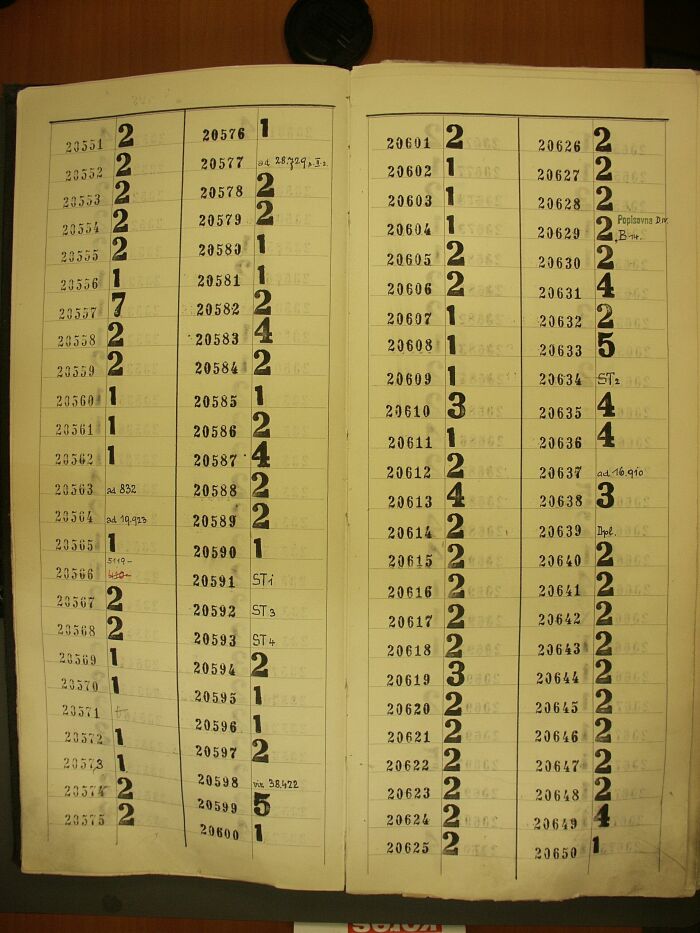 20551 2
20552 2
20553 2
20554 2
20555 2
20556 1
20557 7
20558 2
20559 2
20560 1
20561 1
20562 1
20563 ad 832
20564 ad 19.923
20565 1
5119-
20566
20567 2
20568 2
20569 1
20570 1
20571
20572 1
20573 1
20574 2
20575 2
20576 1
20577 ad 28.729
20578 2
20579 2
20580 1
20581 1
20582 2
20583 4
20584 2
20585 1
20586 2
20587 4
20588 2
20589 2
20590 1
20591 ST1
20592 ST3
20593 ST4
20594 2
20595 1
20596 1
20597 2
20598 viz 38.422
20599 5
20600 1
20601 2
20602 1
20603 1
20604 1
20605 2
20606 2
20607 1
20608 1
20609 1
20610 3
20611 1
20612 2
20613 4
20614 2
20615 2
20616 2
20617 2
20618 2
20619 3
20620 2
20621 2
20622 2
20623 2
20624 2
20625 2
20626 2
20627 2
20628 2
20629 2 Popisovna D.IV.
B 14.
20630 2
20631 4
20632 2
20633 5
20634 ST2
20635 4
20636 4
20637 ad 16.910
20638 3
20639 Dpl.
20640 2
20641 2
20642 2
20643 2
20644 2
20645 2
20646 2
20647 2
20648 2
20649 4
20650 1
kores